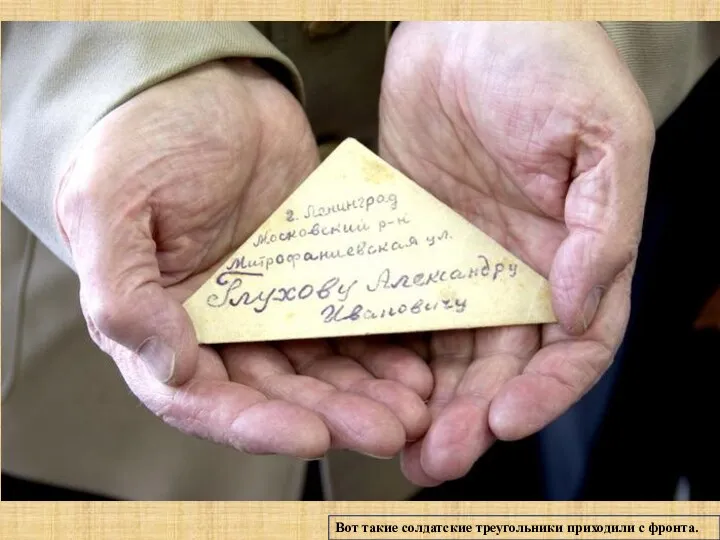 г. Ленинград
Московский р-н
Митрофаниевская ул.
Глухову Александру
Ивановичу
Вот такие солдатские треугольники приходили с фронта.